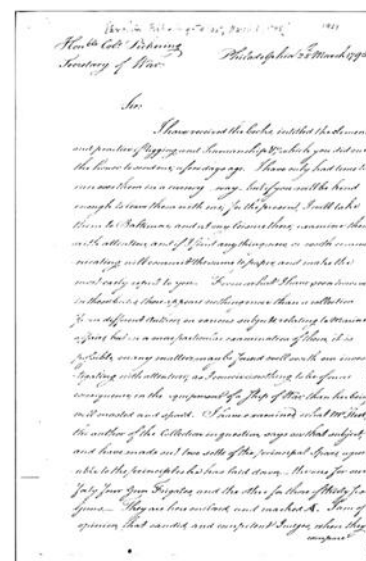 Honble Colo. Pickering
Secretary of War
Philadelphia 22d March 1795
Sir
I have received the books, entitled the elements
and practice of rigging and Seamanship &c, which you did me
the honor to send me, a few days ago. I have only had time to
run over them in a cursory way, but if you will be kind
enough to leave them with me, for the present, I will take
them to Baltimore, and at my leisure there, examine them
with attention, and if I find any thing new, or worth commu-
nicating will commit the same to paper, and make the
most early report to you. From what I have
in these books, there appears nothing more than a collection
from different Authors, on various subjects relating to Marine
affairs, but in a more particular examination of them, it is
probable, many matters may be found well worth our inves-
tigating with attention, as I conceive nothing to be of more
consequence, in the equipment of a Ship of War than her being
well masted and spared. I have examined what Mr. Steel,
the author of the Collection in question, says on that subject,
and have made out two setts of the principal Spars, agree-
able to the principles he has laid down, the one for our
forty four Gun Frigates, and the other for those of thirty six
Guns. They are here enclosed, and marked A. I am of
opinion, that candid and competent Judges, when they
compare